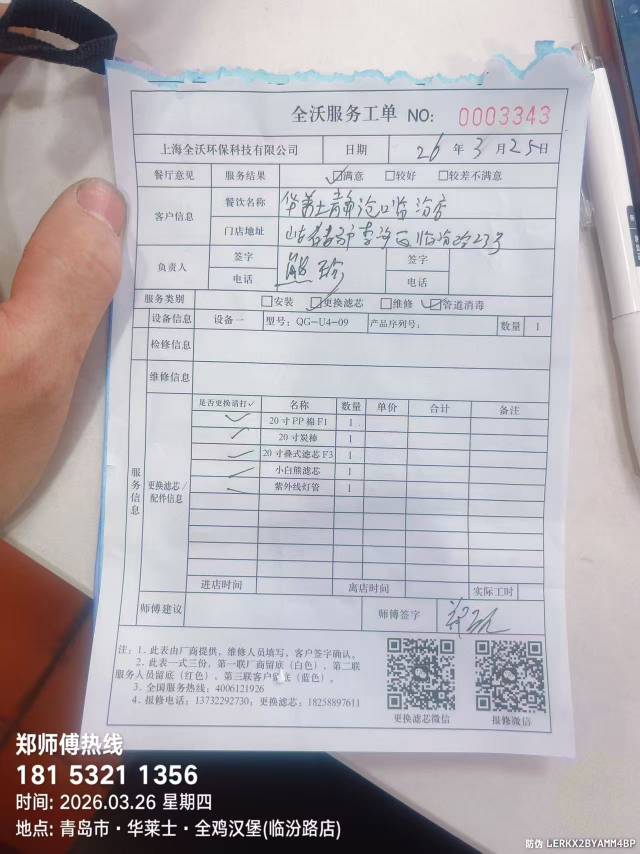 全沃服务工单 NO: 0003343
上海全沃环保科技有限公司 日期 26 年 3 月 25 日
餐厅意见 服务结果 ☑满意 □较好 □较差不满意
客户信息 餐饮名称 华莱士青岛沧口临汾店
门店地址 临汾路23号
负责人 签字 签字
电话 电话
服务类别 □安装 ☑更换滤芯 □维修 ☑管道消毒
服务信息
设备信息 设备一 型号: QG-U4-09 产品序列号: 数量 1
检修信息
维修信息
更换滤芯/配件信息
是否更换请打✓ 名称 数量 单价 合计 备注
✓ 20寸PP棉F1 1
✓ 20寸炭棒 1
✓ 20寸叠式滤芯F3 1
✓ 小白熊滤芯 1
✓ 紫外线灯管 1
进店时间 离店时间 实际工时
师傅建议 师傅签字
注: 1. 此表由厂商提供, 维修人员填写, 客户签字确认。
2. 此表一式三份, 第一联厂商留底(白色)、第二联
服务人员留底(红色)、第三联客户留底(蓝色)。
3. 全国服务热线: 4006121926
4. 报修电话: 13732292730; 更换滤芯: 18258897611
更换滤芯微信 报修微信
郑师傅热线
181 5321 1356
时间: 2026.03.26 星期四
地点: 青岛市·华莱士·全鸡汉堡(临汾路店)
防伪 LERKX2BYAMM4BP